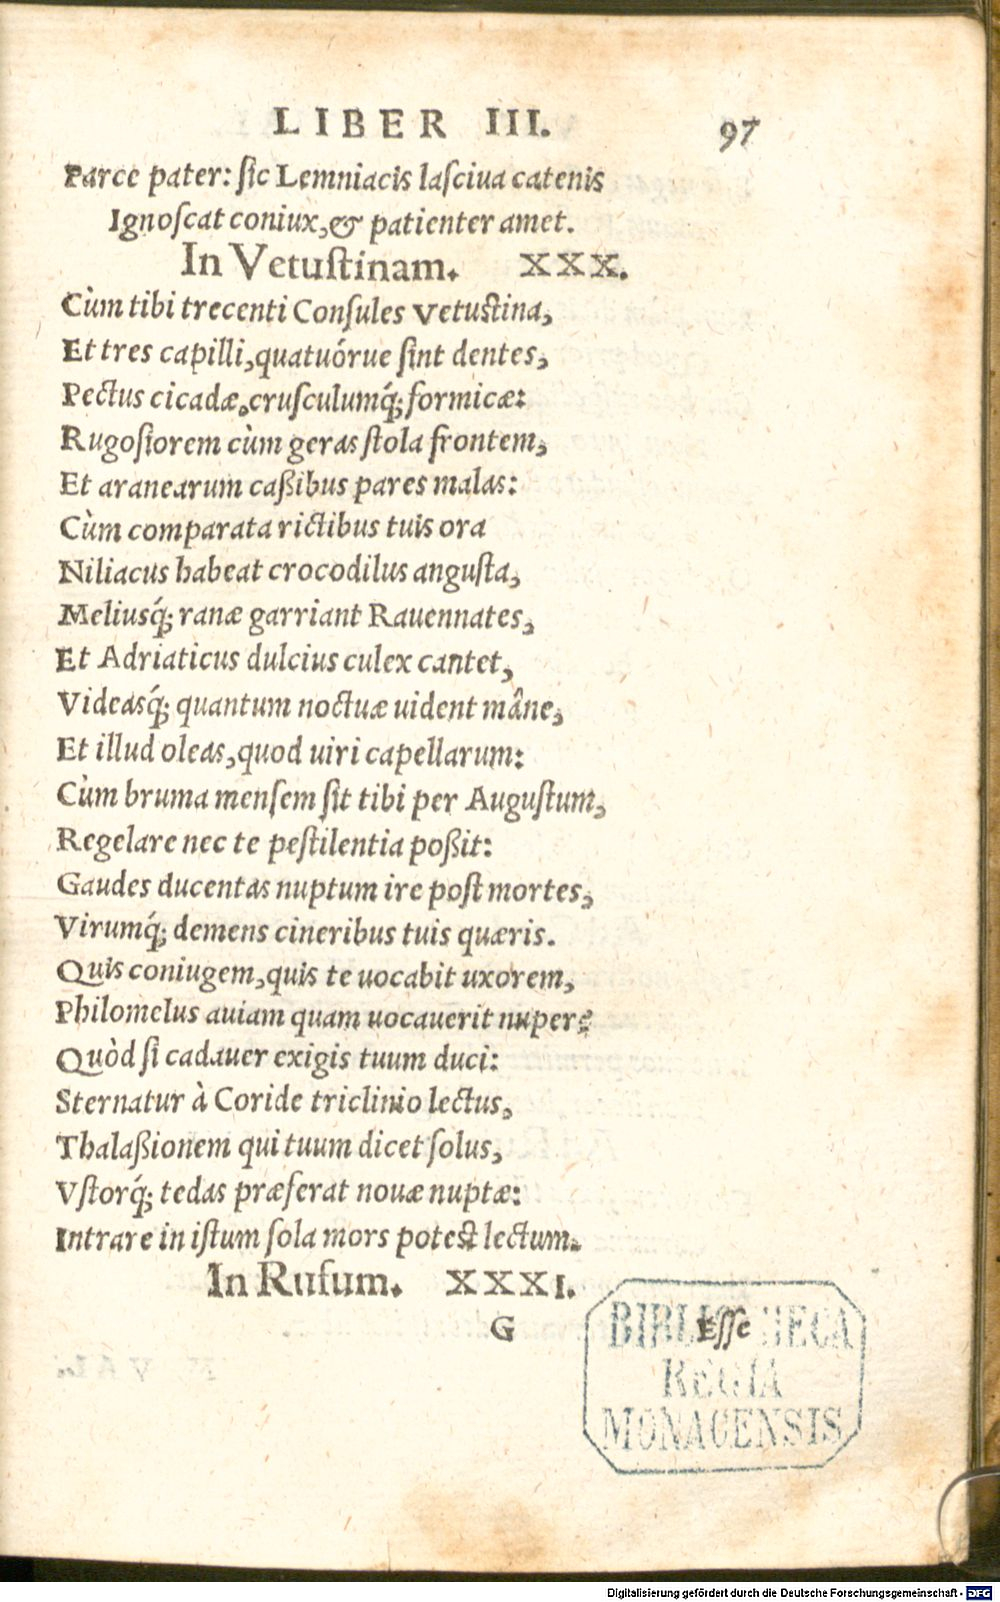 LIBER III. 97
Parce pater: sic Lemniacis lasciua catenis
Ignoscat coniux, & patienter amet.
In Vetustinam. XXX.
Cùm tibi trecenti Consules Vetustina,
Et tres capilli, quatuórue sint dentes,
Pectus cicadæ, crusculumq́; formicæ:
Rugosiorem cùm geras stola frontem,
Et aranearum caßibus pares malas:
Cùm comparata rictibus tuis ora
Niliacus habeat crocodilus angusta,
Meliusq́; ranæ garriant Rauennates,
Et Adriaticus dulcius culex cantet,
Videasq́; quantum noctuæ uident mâne,
Et illud oleas, quod uiri capellarum:
Cùm bruma mensem sit tibi per Augustum,
Regelare nec te pestilentia poßit:
Gaudes ducentas nuptum ire post mortes,
Virumq́; demens cineribus tuis quæris.
Quis coniugem, quis te uocabit uxorem,
Philomelus auiam quam uocauerit nuper?
Quòd si cadauer exigis tuum duci:
Sternatur à Coride triclinio lectus,
Thalaßionem qui tuum dicet solus,
Vstorq́; tedas præferat nouæ nuptæ:
Intrare in istum sola mors potest lectum.
In Rufum. XXXI.
G Esse
BIBLIOTHECA
REGIA
MONACENSIS
Digitalisierung gefördert durch die Deutsche Forschungsgemeinschaft - DFG